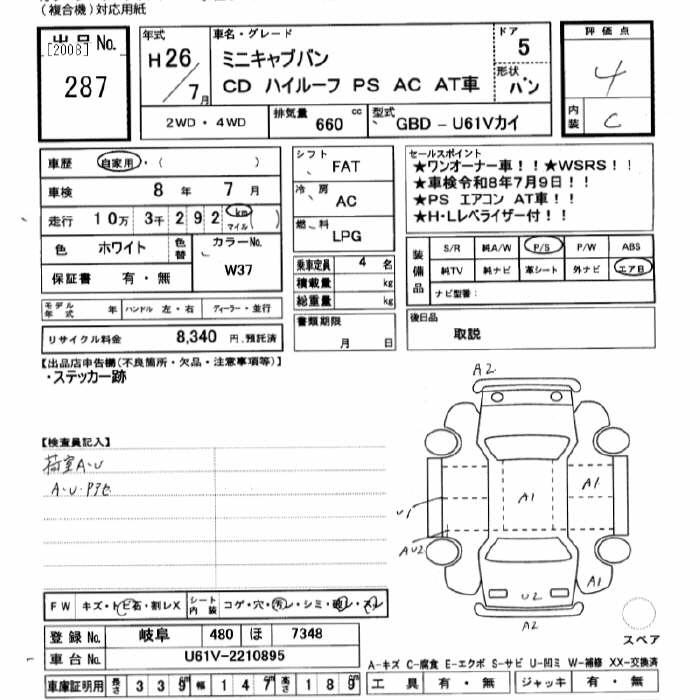 (複合機)対応用紙
出品No.
[2008]
287
年式
H26/7月
車名・グレード
ミニキャブバン
CD ハイルーフ PS AC AT車
ドア
5
形状
バン
評価点
4
内装
C
2WD・4WD
排気量 660 cc
型式 GBD-U61Vカイ
車歴 自家用・( )
車検 8年 7月
走行 10万 3千 2 9 2 km マイル
色 ホワイト 色替
カラーNo.
W37
保証書 有・無
モデル年式 年 ハンドル 左・右 ディーラー・並行
リサイクル料金 8,340 円,預託済
シフト FAT
冷房 AC
燃料 LPG
乗車定員 4 名
積載量 kg
総重量 kg
書類期限
月 日
セールスポイント
★ワンオーナー車!!★WSRS!!
★車検令和8年7月9日!!
★PS エアコン AT車!!
★H・Lレベライザー付!!
装備品
S/R 純A/W P/S P/W ABS
純TV 純ナビ 革シート 外ナビ エアB
ナビ型番:
後日品
取説
【出品店申告欄(不良箇所・欠品・注意事項等)】
・ステッカー跡
【検査員記入】
荷室A・U
A・U・Pアセ
A2
U1
A1
A1
AU2
U2
A1
A2
スペア
FW キズ・トビ石・割レX
シート内装 コゲ・穴・汚レ・シミ・破レ・スレ
登録No. 岐阜 480 ほ 7348
車台No. U61V-2210895
車庫証明用 長さ 339㎝ 幅 147㎝ 高さ 189㎝
A-キズ C-腐食 E-エクボ S-サビ U-凹ミ W-補修 XX-交換済
工具 有・無 ジャッキ 有・無